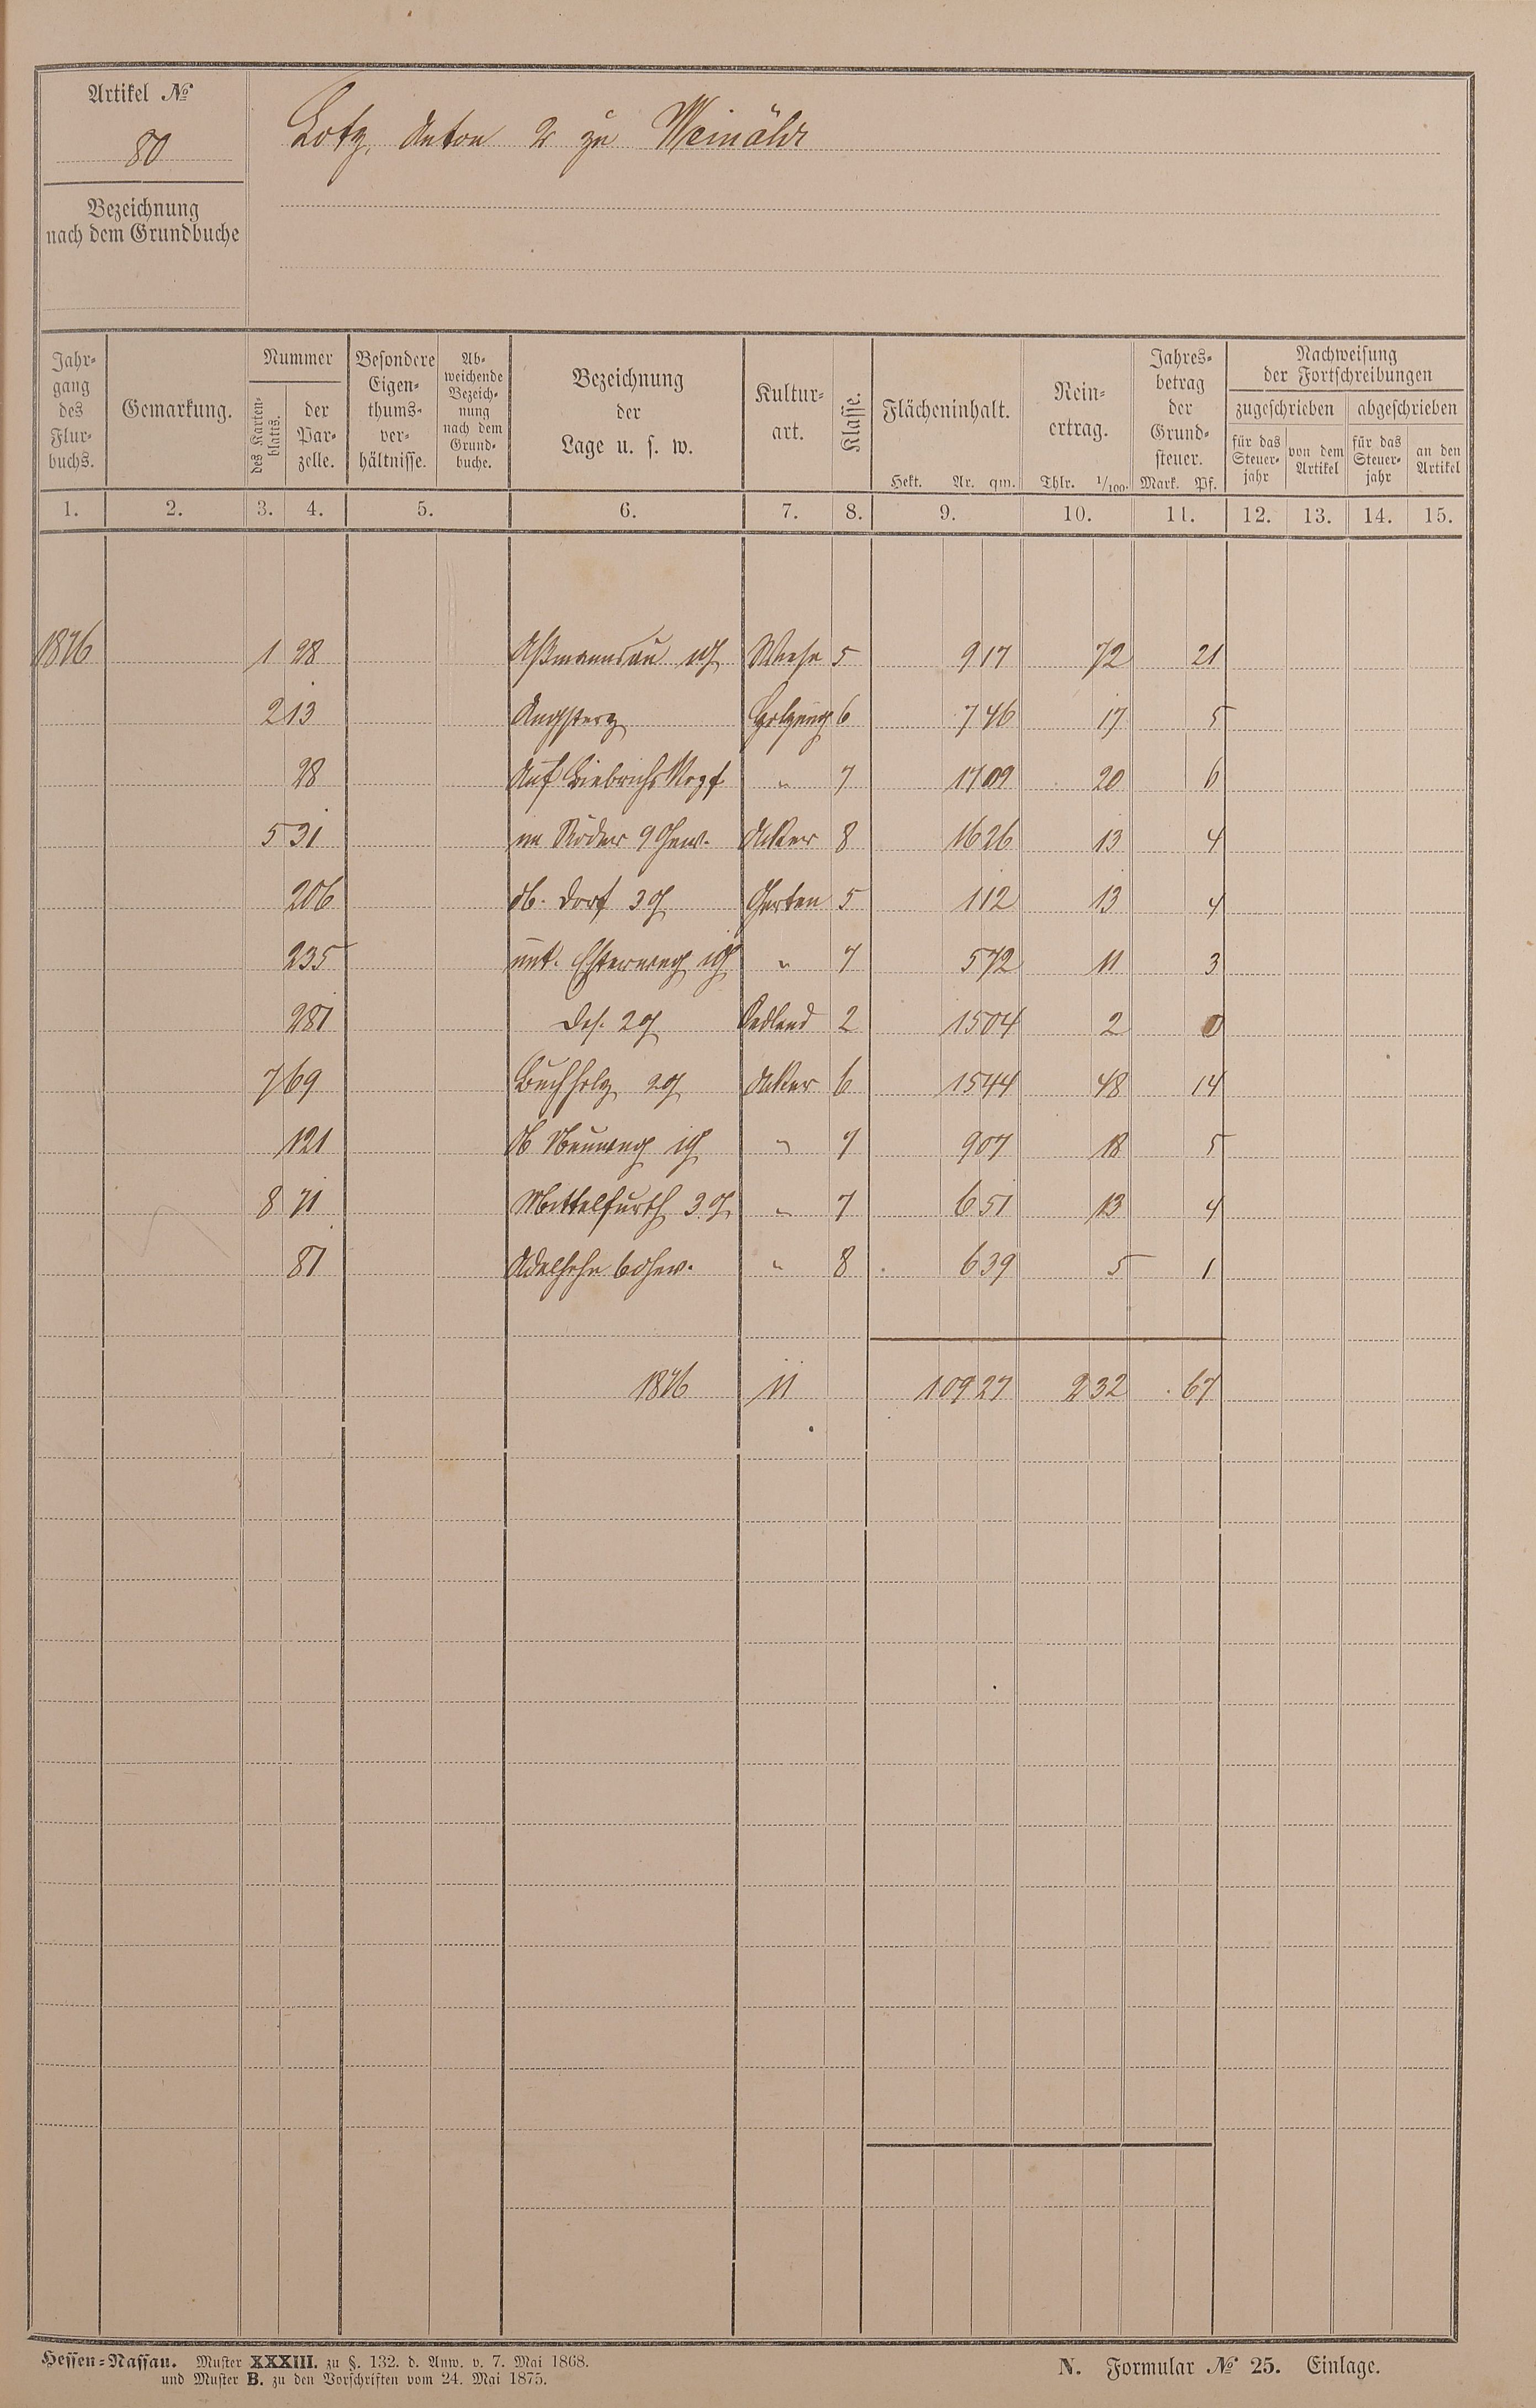 Artikel №
80
Lotz, Anton 2r zu Weinähr
Bezeichnung
nach dem Grundbuche
Jahrgang des Flurbuchs. Gemarkung. Nummer des Kartenblatts. der Parzelle. Besondere Eigenthumsverhältnisse. Abweichende Bezeichnung nach dem Grundbuche. Bezeichnung der Lage u. s. w. Kulturart. Klasse. Flächeninhalt. Hekt. Ar. qm. Reinertrag. Thlr. 1/100. Jahresbetrag der Grundsteuer. Mark. Pf. Nachweisung der Fortschreibungen zugeschrieben für das Steuerjahr von dem Artikel abgeschrieben für das Steuerjahr an den Artikel
1. 2. 3. 4. 5. 6. 7. 8. 9. 10. 11. 12. 13. 14. 15.
1876 1 28 Aßmannsau 1G Wiese 5 9 17 72 21
2 13 Holzung 6 7 46 17 5
28 Auf Biebrichs Kopf " 7 17 09 20 6
5 31 im Röder 9 Gew. Acker 8 16 26 13 4
206 ob. Dorf 3G Garten 5 1 12 13 4
235 unt. 1G " 7 5 72 11 3
281 das. 2G Oedland 2 15 04 2 0
7 69 Buchholz 2G Acker 6 15 44 48 14
121 ob Neuweg 1G " 7 9 07 18 5
8 71 Mittelfurth 3G. " 7 6 51 13 4
87 6 Gew. " 8 6 39 5 1
1876 11 1 09 27 2 32 67
Hessen-Nassau. Muster XXXIII. zu §. 132. d. Anw. v. 7. Mai 1868.
und Muster B. zu den Vorschriften vom 24. Mai 1875.
N. Formular № 25. Einlage.